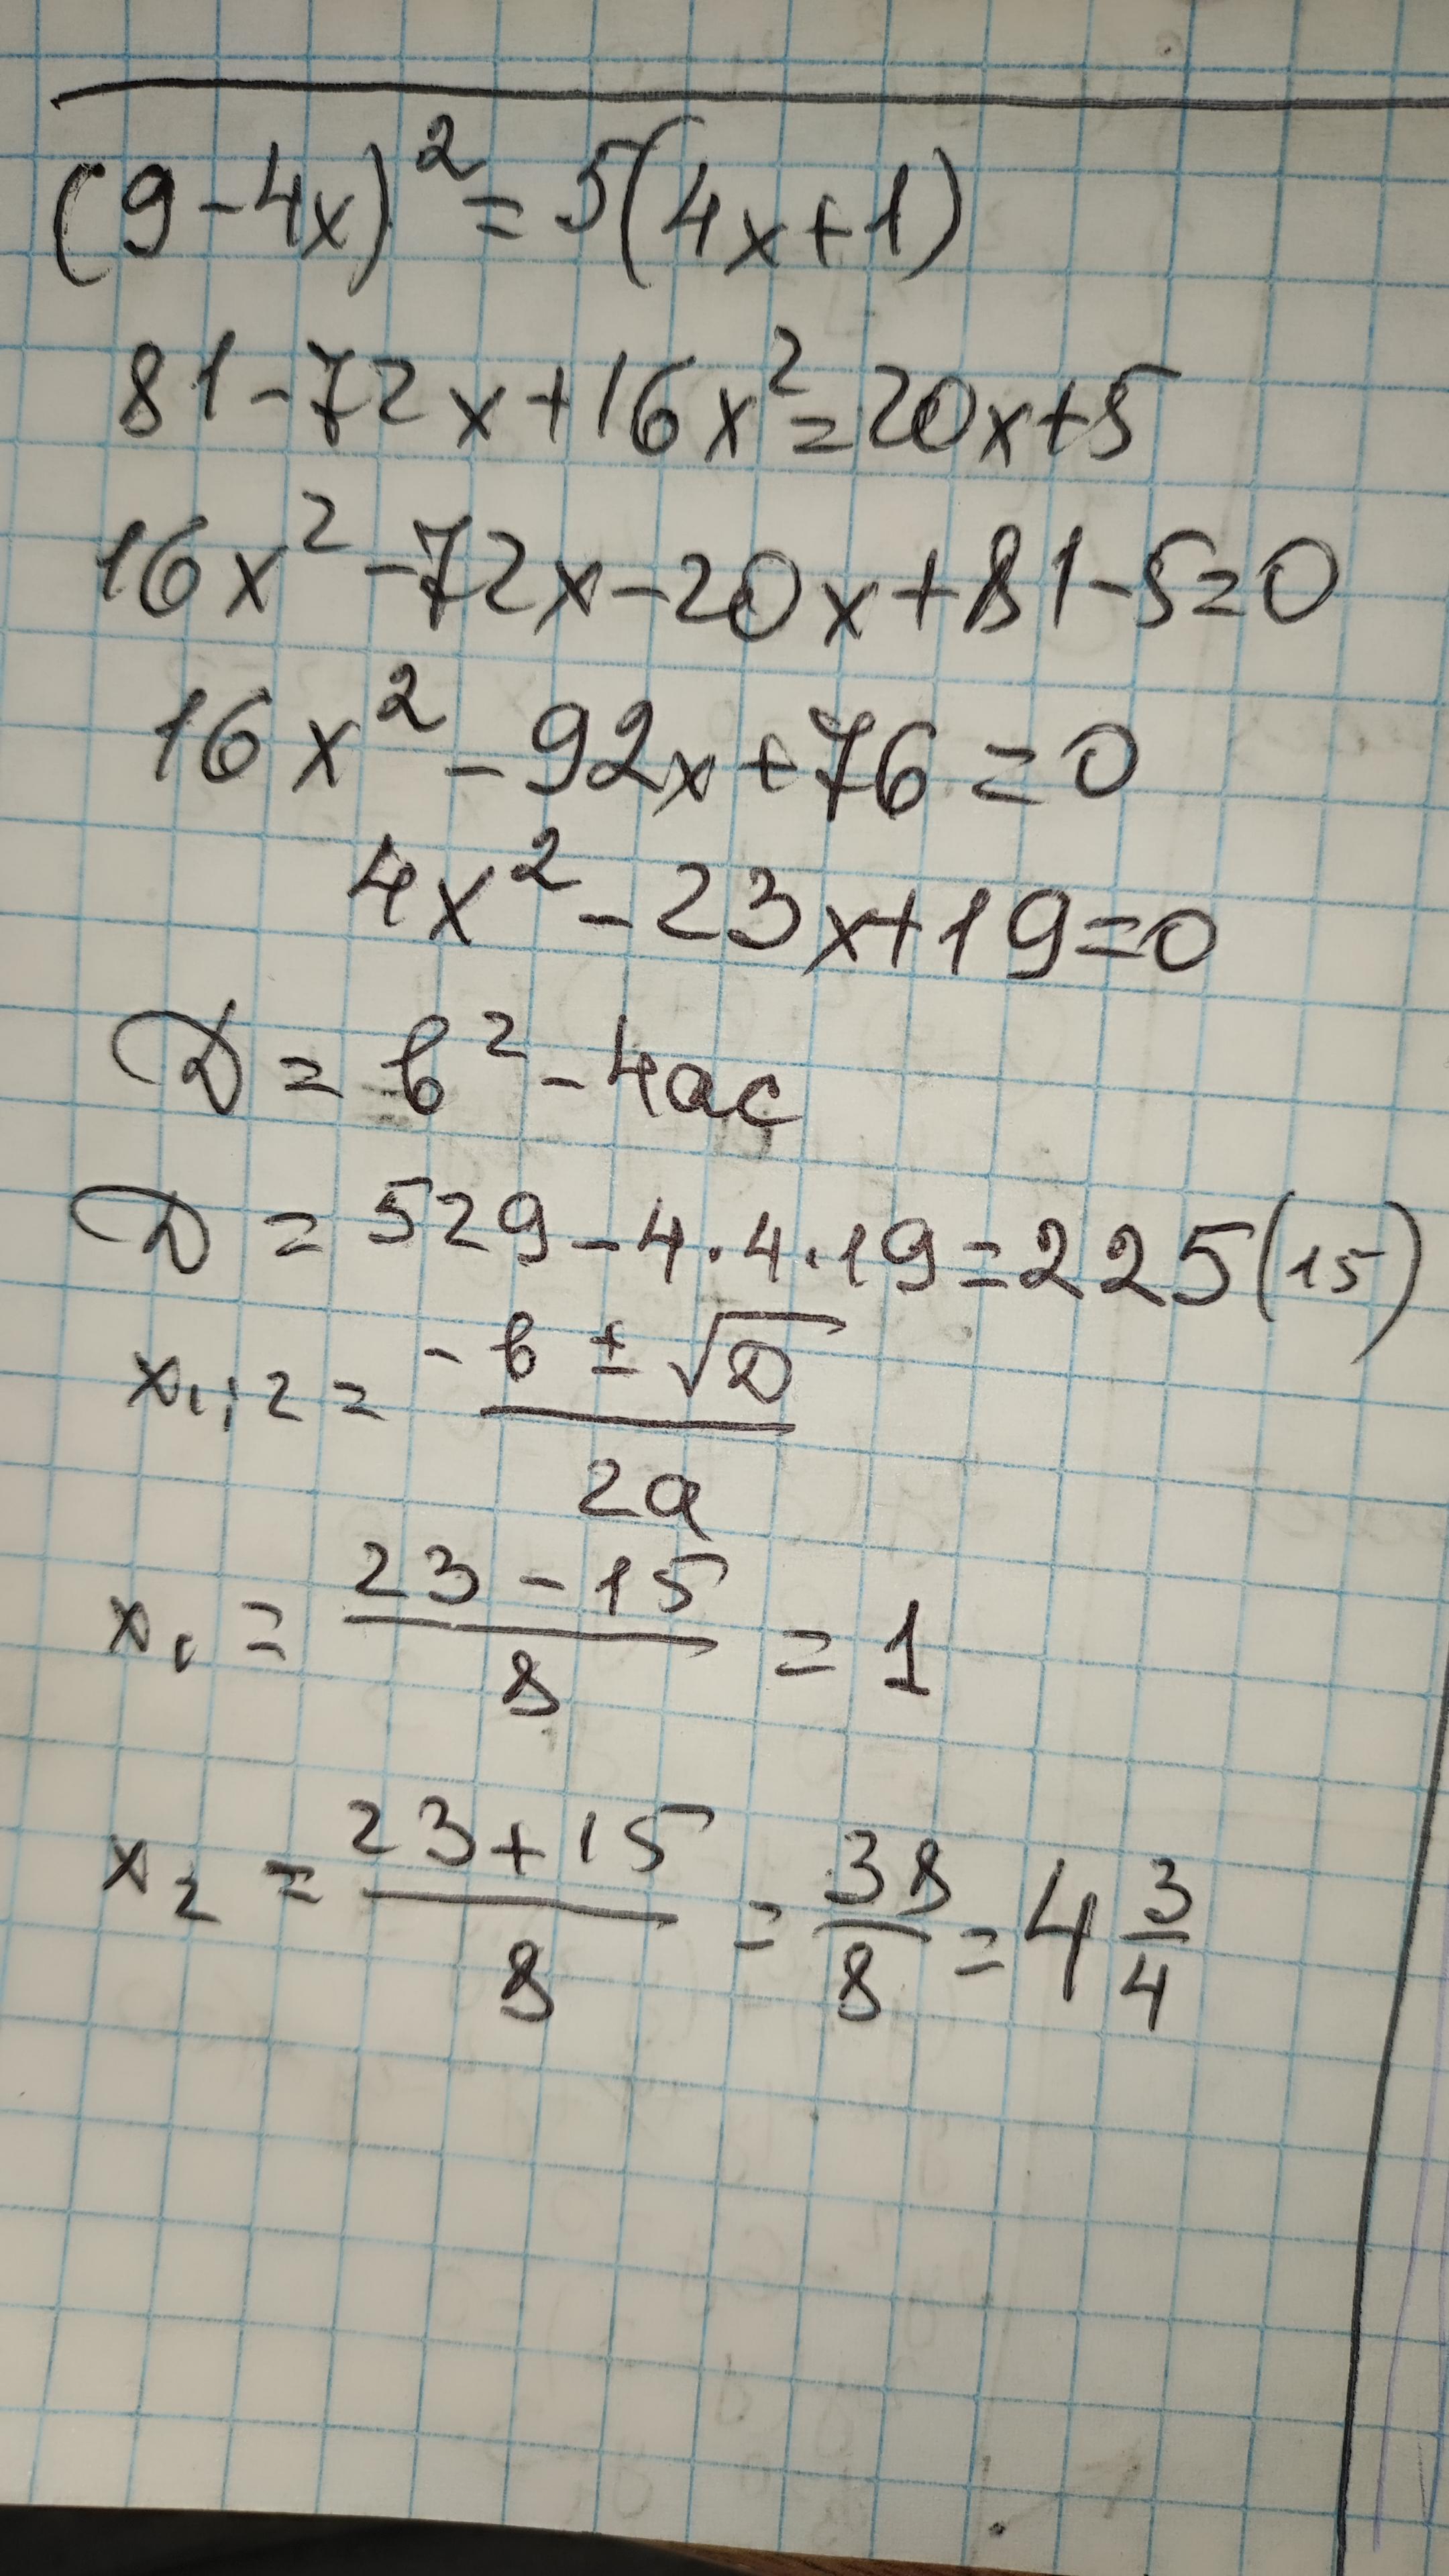 (9-4x)²=5(4x+1)
81-72x+16x²=20x+5
16x²-72x-20x+81-5=0
16x²-92x+76=0
4x²-23x+19=0
D=b²-4ac
D=529-4·4·19=225(15)
x₁;₂=(-b±√D)/2a
x₁=(23-15)/8=1
x₂=(23+15)/8=38/8=4 3/4